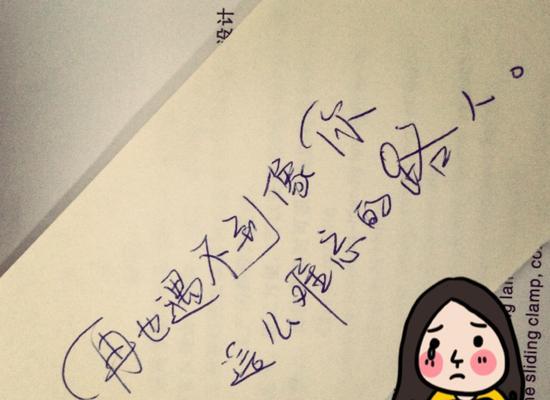 再也遇不到像你
这么难忘的路人。
设计
ng lan
he sliding clamp, co